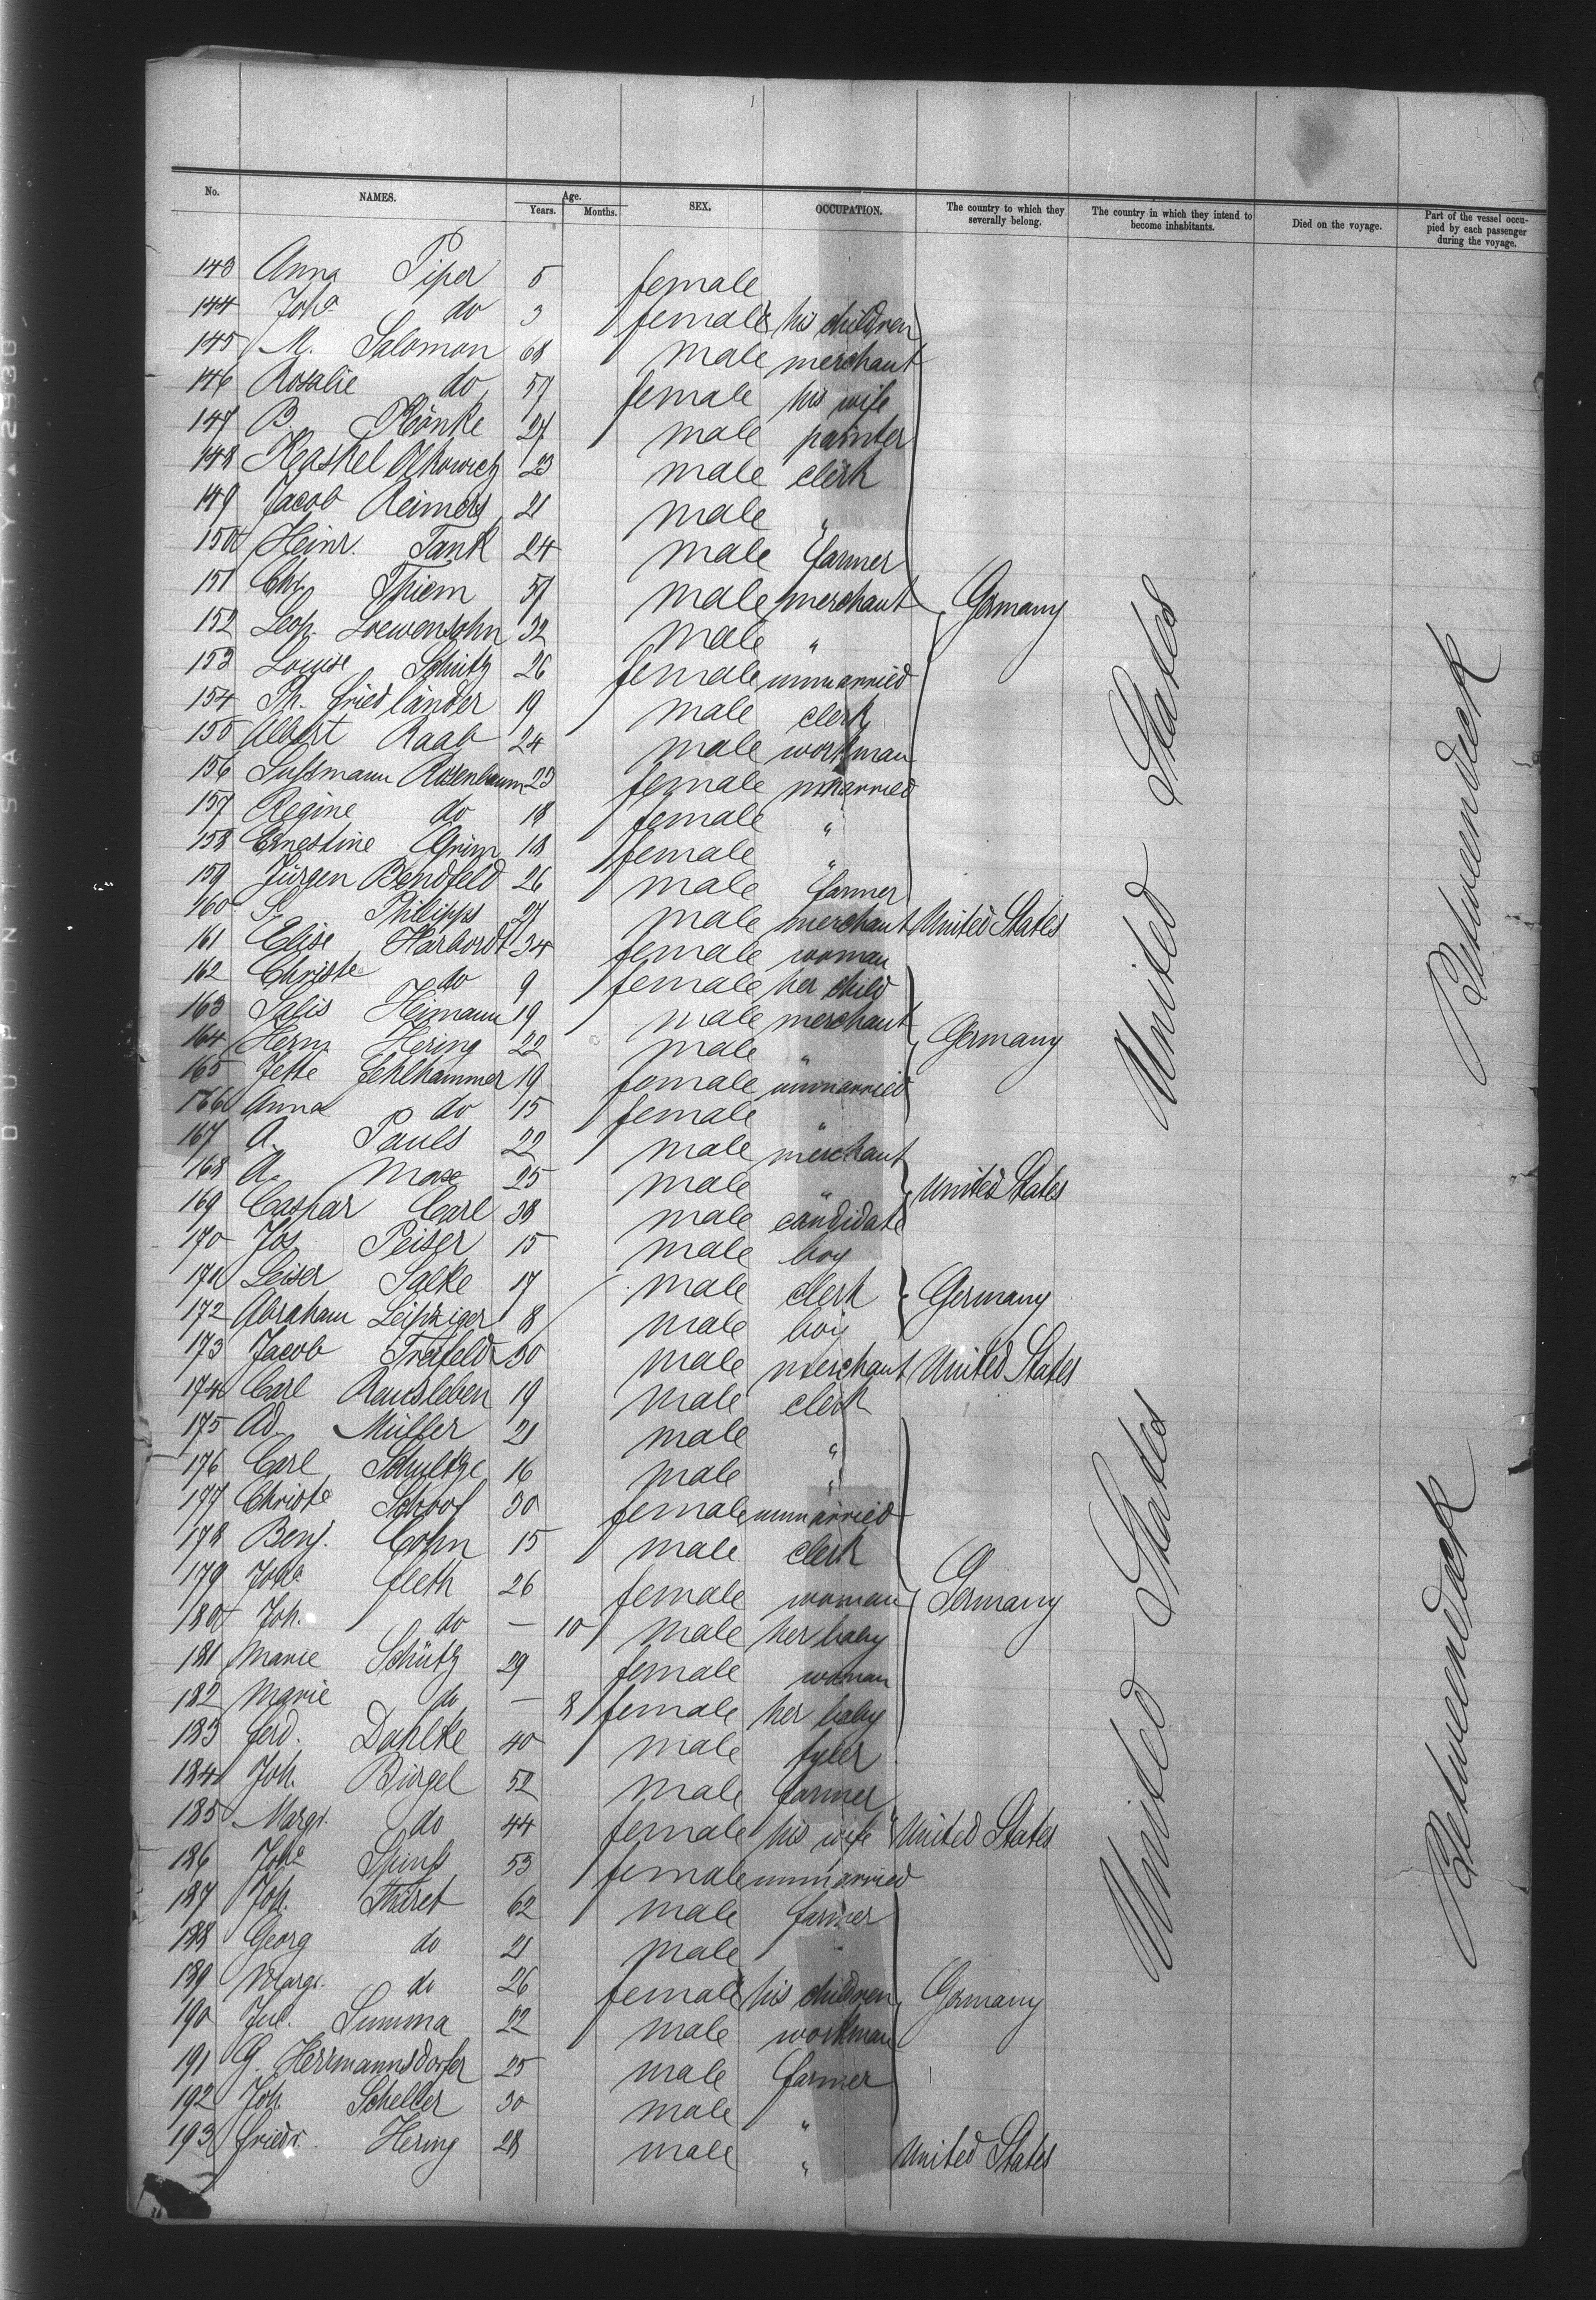 No. NAMES. Age. Years. Months. SEX. OCCUPATION. The country to which they severally belong. The country in which they intend to become inhabitants. Died on the voyage. Part of the vessel occupied by each passenger during the voyage.
143 Anna Piper 5 female
144 Joha do 3 female his children
145 M. Salomon 68 male merchant
146 Rosalie do 57 female his wife
147 B. 27 male painter
148 Kaskel 23 male clerk
149 Jacob Reimers 21 male "
150 Heinr. Tank 24 male farmer
151 Chr. Thiem 57 male merchant Germany
152 Leop. Loewensohn 32 male "
153 Louise Schütz 26 female unmarried
154 Th. Friedländer 19 male clerk
155 Albert Raab 24 male workman
156 Sussmann Rosenbaum 23 female unmarried
157 Regine do 18 female "
158 Ernestine Grim 18 female "
159 Jürgen Bendfeld 26 male farmer
160 S. Philipps 27 male merchant United States
161 Elise Harbordt 34 female woman
162 Christe do 9 female her child
163 Salis Heimann 19 male merchant
164 Herm Hering 22 male " Germany
165 Jette Fehlhammer 19 female unmarried
166 Anna do 15 female "
167 A. Pauls 22 male merchant
168 A. Mose 25 male " United States
169 Caspar Carl 38 male candidate
170 Jos Peiser 15 male boy
171 Leiser Salke 17 male clerk Germany
172 Abraham Leipziger 8 male boy
173 Jacob 30 male merchant United States
174 Carl Rausleben 19 male clerk
175 Ad. Müller 21 male "
176 Carl Schultze 16 male "
177 Christe Schoof 30 female unmarried
178 Benj. Cohn 15 male clerk
179 Joha Fleth 26 female woman Germany
180 Joh. do — 10 male her baby
181 Marie Schütz 29 female woman
182 Marie do — 8 female her baby
183 Ferd. Dahlke 40 male tyler
184 Joh. Birgel 52 male farmer
185 Margr. do 44 female his wife United States
186 Joha 53 female unmarried
187 Joh. 62 male farmer
188 Georg do 21 male "
189 Margr. do 26 female his children Germany
190 Jul. Summa 22 male workman
191 G. Herrmannsdorfer 25 male farmer
192 Joh. Scheller 30 male "
193 Friedr. Hering 28 male " United States
United States
Betweendeck
United States
Betweendeck